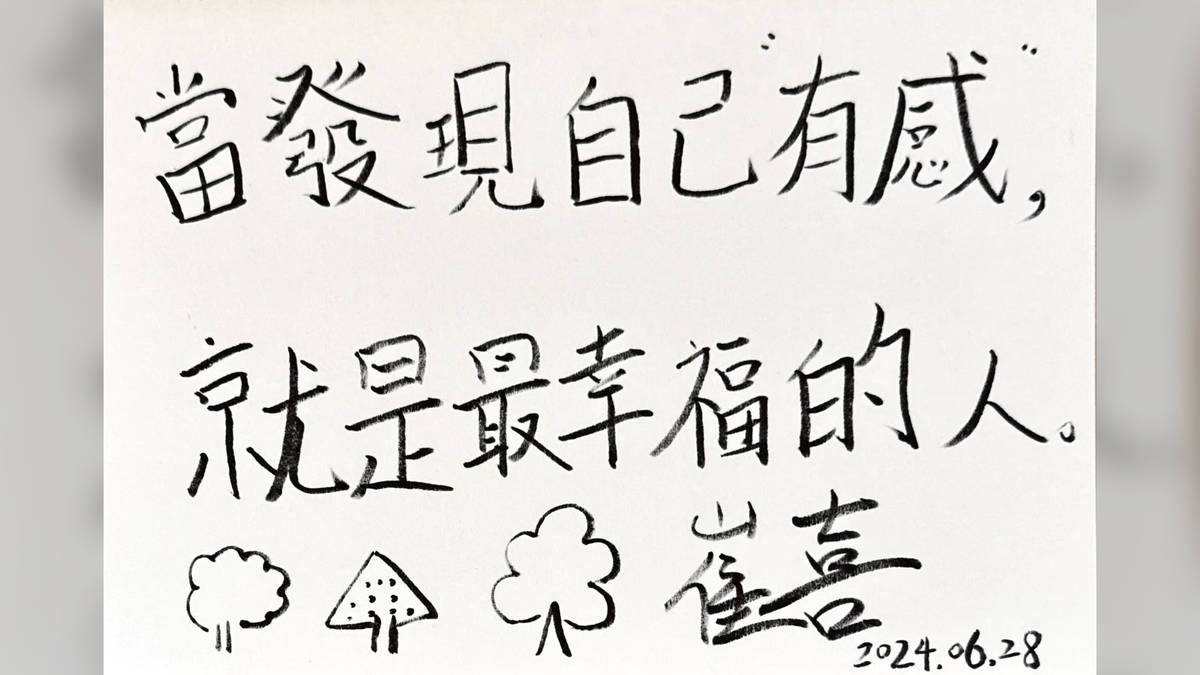 當發現自己"有感",
就是最幸福的人。
崔喜
2024.06.28